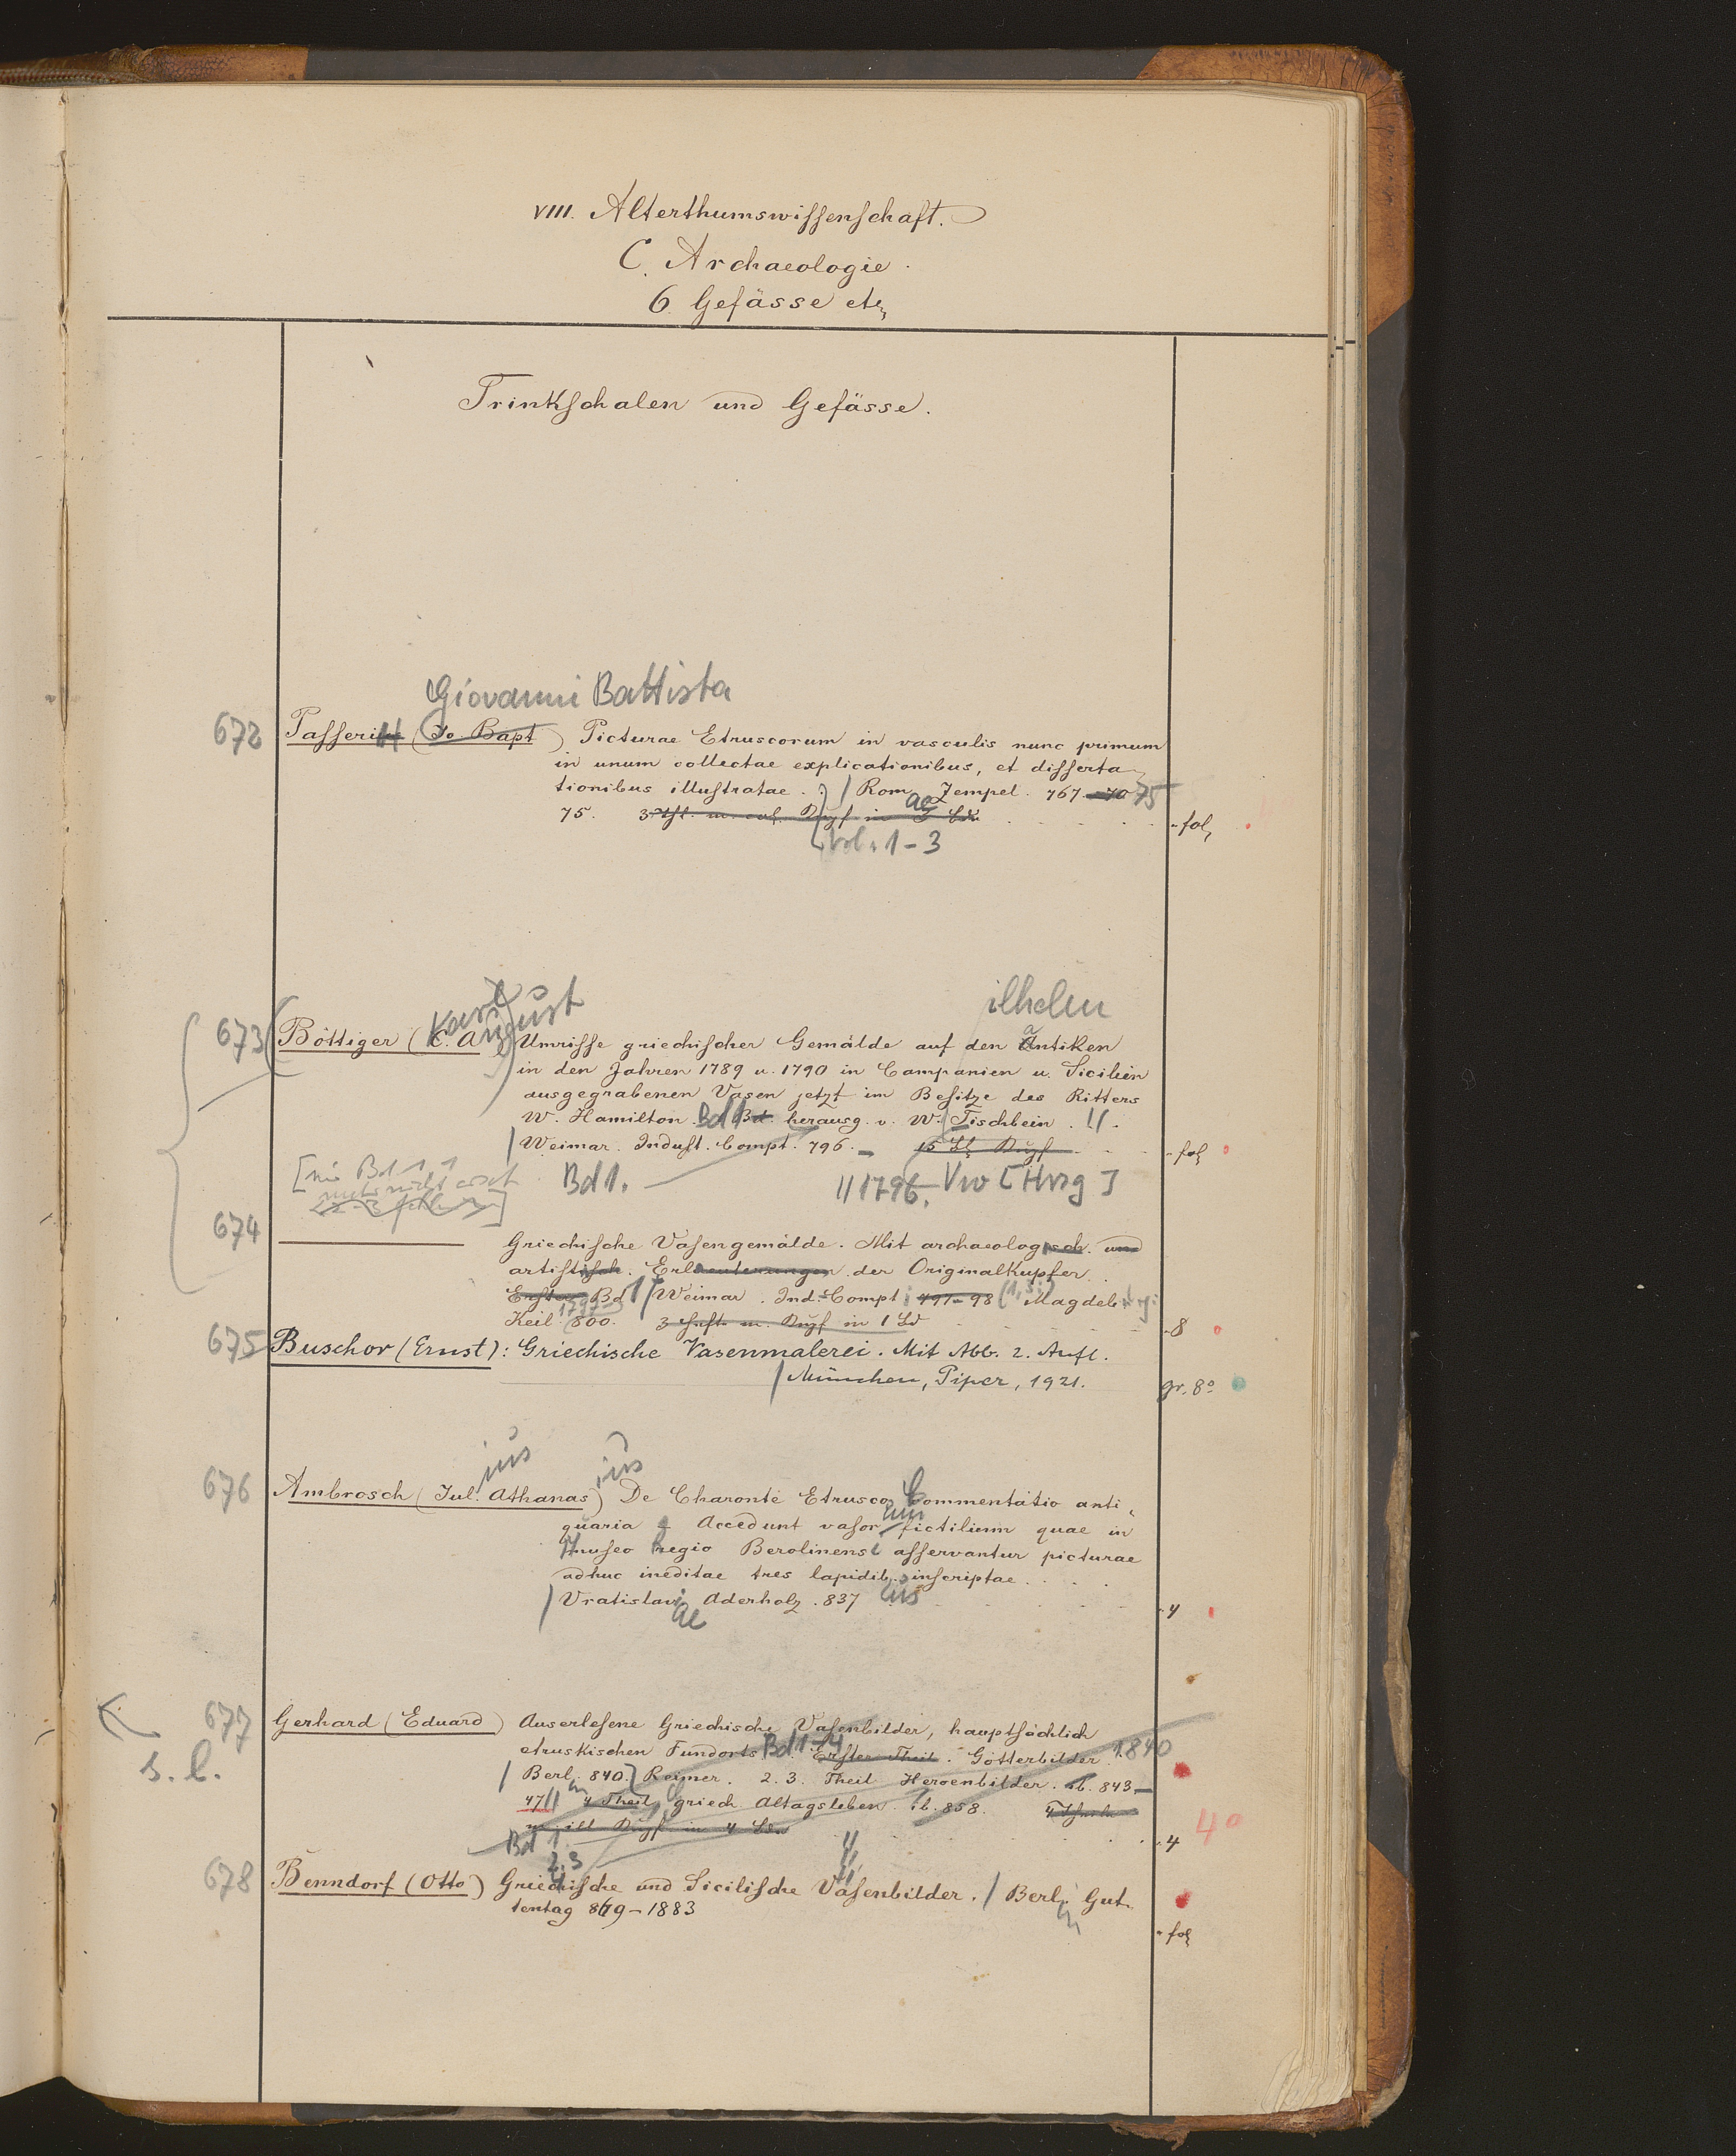 VIII. Alterthumswiſſenſchaft.
C. Archaeologie.
6. Gefässe etc
Trinkſchalen und Gefässe.
Giovanni Battista
672 Paſſeri (Jo. Bapt) Picturae Etruscorum in vasculis nunc primum
in unum collectae explicationibus, et diſſerta-
tionibus illuſtratae. / Rom ae Zempel. 767-70 75
75. 3 in 3 Bd
Vol. 1-3
- fol
Karl August
ilhelm
673 Böttiger (C. A.) Umriſſe griechiſcher Gemälde auf den antiken
in den Jahren 1789 u. 1790 in Campanien u. Sicilien
ausgegrabenen Vasen jetzt im Beſitze des Ritters
W. Hamilton. Bd 1 herausg. v. W. Tischbein.
/ Weimar. Induſt. Compt. 796.-
- fol
Bd 1.
// 1796. Vw [Hrsg]
674 Griechiſche Vaſengemälde. Mit archaeologisch. und
artiſtiſch. Erläeuterungen der OriginalKupfer.
Erſter Bd 1 / Weimar. Ind. Compt. 797-98 Magdeb.
1797-
Keil 800. 3 in 1 Bd
- 8
675 Buschor (Ernst): Griechische Vasenmalerei. Mit Abb. 2. Aufl.
/ München, Piper, 1921.
gr. 8°
ius ius
676 Ambrosch (Jul. Athanas) De Charonte Etrusco Commentatio anti-
quaria Accedunt vasor um fictilium quae in
Museo Regio Berolinensi aſſervantur picturae
adhuc ineditae tres lapidib. us inſcriptae.
/ Vratislaviae Aderholz. 837
- 4
677 Gerhard (Eduard) Auserleſene Griechiſche Vaſenbilder, hauptſächlich
s. l.
etruskiſchen Fundorts Bd 1-4 Erſter Theil. Götterbilder 1840
/ Berl. 840. Reimer. 2. 3. Theil Heroenbilder. ib. 843-
47 // 4 Theil griech Altagsleben. ib. 858.
in 4 Bd
Bd 1
2.3
- 4
4°
678 Benndorf (Otto) Griechiſche und Siciliſche Vaſenbilder. / Berlin Gut-
tentag 869-1883
- fol